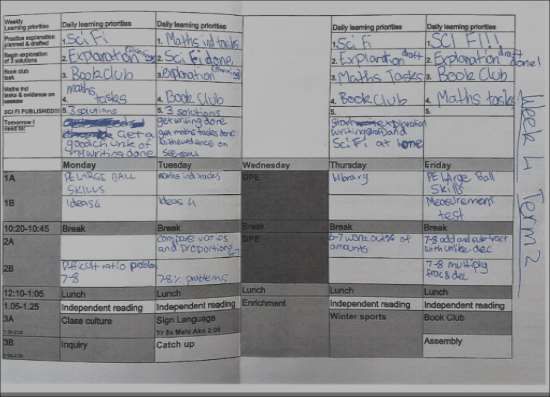 Weekly Learning priorities
Daily learning priorities
Daily learning priorities
Daily learning priorities
Daily learning priorities
Practice explanation planned & drafted
1. Sci Fi
1. Maths ind tasks
1. Sci Fi
1. SCI FI!!!
Begin explanation of 3 solutions
2. Explanation
2. Sci Fi done
2. Explantion draft
2. Explanation draft done!
Book club task
3. Book Club
3. explanation
3. Maths Tasks
3. Book Club
Maths ind tasks & evidence on seesaw
4. maths tasks
4. Book Club
4. Book Club
4. Maths tasks
SCI FI PUBLISHED!!!!
5. 3 solutions
5. 3 solutions
5.
5.
Tomorrow I need to:
Get a good chunk of writing done
get writing done
get maths tasks done
evidence on
seesaw
explanation
writing and
Sci Fi at home
Week 4 Term 2
Monday
Tuesday
Wednesday
Thursday
Friday
1A
PE LARGE BALL SKILLS
maths ind tasks
DPE
Library
PE Large Ball Skills
1B
Ideas 4
Ideas 4
Measurement test
10:20-10:45
Break
Break
Break
Break
2A
compare ratios and proportions
DPE
6-7 work out % of amounts
7-8 add and subtract with unlike dec
2B
Difficult ratio problems 7-8
7-8 % problems
7-8 multiply frac & dec
12:10-1:05
Lunch
Lunch
Lunch
Lunch
Lunch
1.05-1.25
Independent reading
Independent reading
Enrichment
Independent reading
Independent reading
3A
Class culture
Sign Language
Winter sports
Book Club
3B
Inquiry
Catch up
Assembly